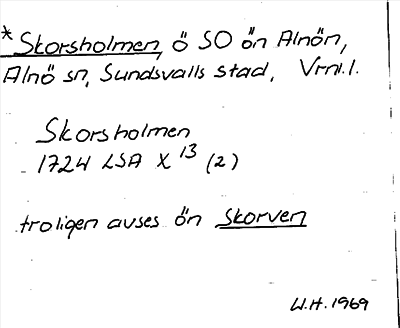 *Skorsholmen, ö SO ön Alnön,
Alnö sn, Sundsvalls stad, Vrnl.l.
Skorsholmen
1724 LSA X 13 (2)
troligen avses ön Skorven
W.H. 1969